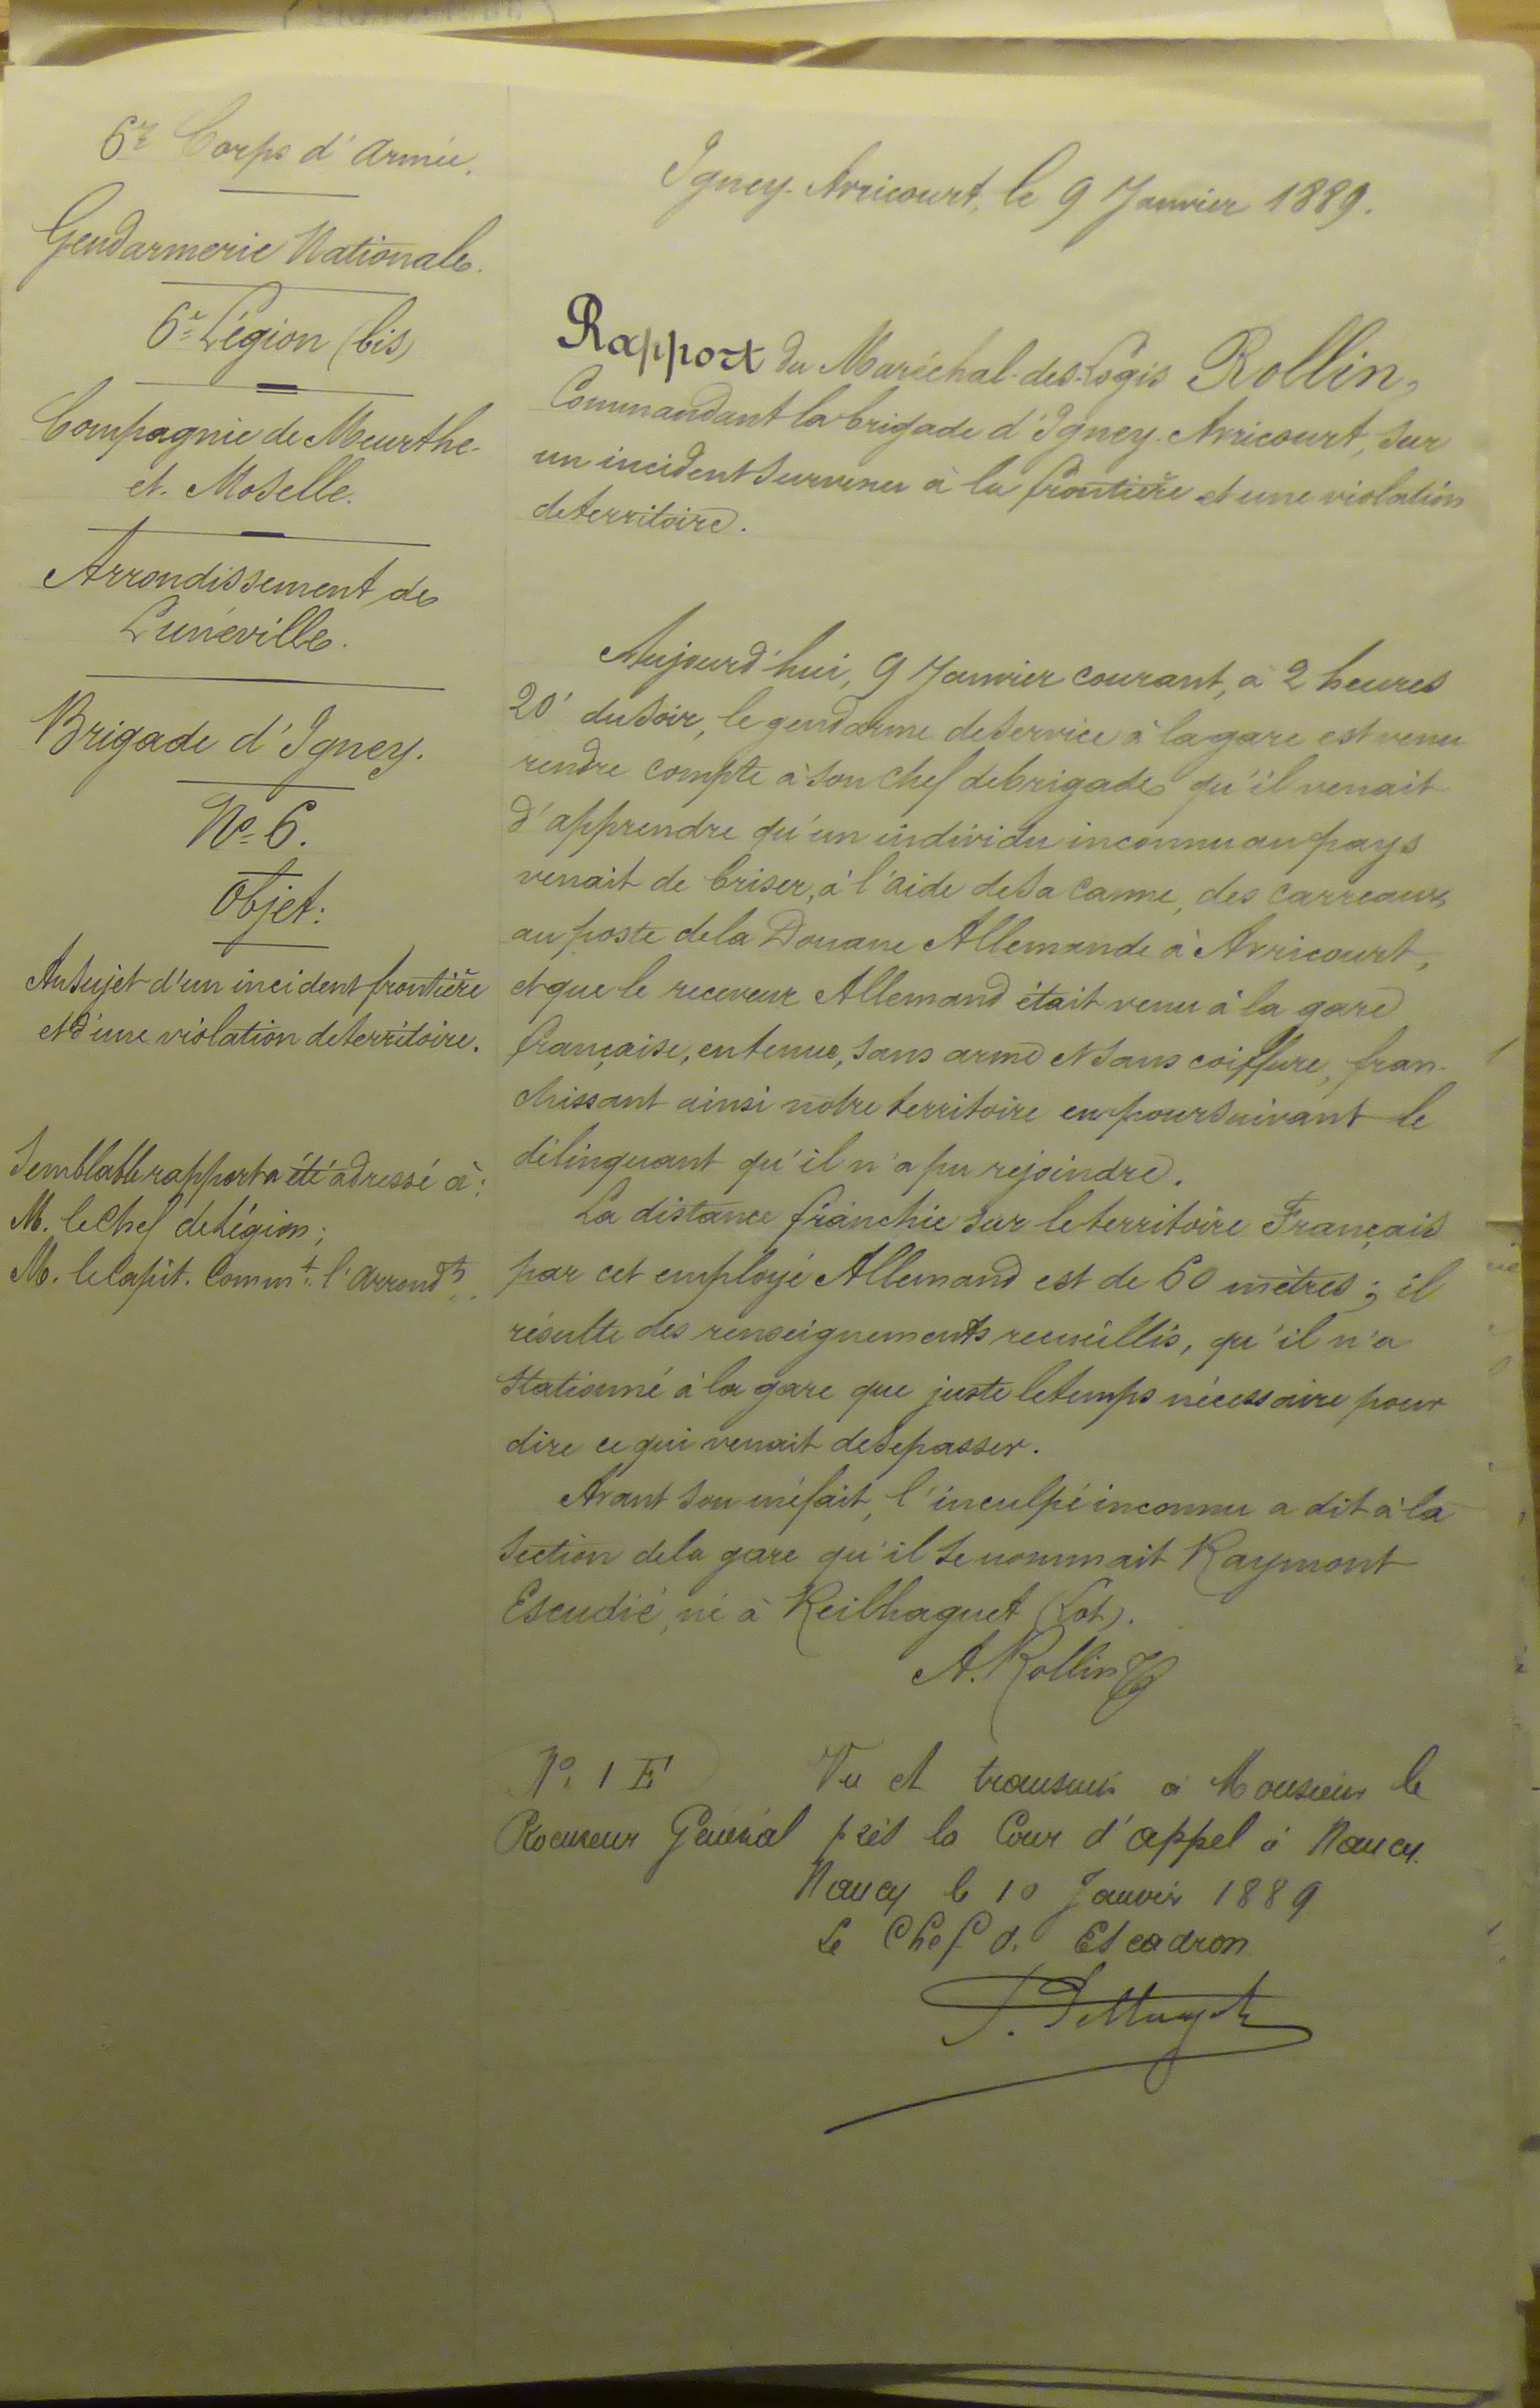 6e Corps d'Armée.
Gendarmerie Nationale.
6e Légion (bis)
Compagnie de Meurthe-
et-Moselle.
Arrondissement de
Lunéville.
Brigade d'Igney.
No 6.
Objet:
Au sujet d'un incident frontière
et d'une violation de territoire.
Semblable rapport a été adressé à:
M. le Chef de Légion;
M. le Capit. Commt. l'Arrondt.
Igney-Avricourt, le 9 Janvier 1889.
Rapport du Maréchal-des-Logis Rollin,
Commandant la brigade d'Igney-Avricourt, sur
un incident survenu à la frontière et une violation
de territoire.
Aujourd'hui, 9 Janvier courant, à 2 heures
20' du soir, le gendarme de service à la gare est venu
rendre compte à son chef de brigade qu'il venait
d'apprendre qu'un individu inconnu au pays
venait de briser, à l'aide de sa canne, des carreaux
au poste de la Douane Allemande à Avricourt,
et que le receveur Allemand était venu à la gare
française, en tenue, sans arme et sans coiffure, fran-
chissant ainsi notre territoire en poursuivant le
délinquant qu'il n'a pu rejoindre.
La distance franchie sur le territoire Français
par cet employé Allemand est de 60 mètres; il
résulte des renseignements recueillis, qu'il n'a
stationné à la gare que juste le temps nécessaire pour
dire ce qui venait de se passer.
Avant son méfait, l'inculpé inconnu a dit à la
section de la gare qu'il se nommait Raymont
Escudié, né à Reilhaguet (Lot).
A. Rollin
No. 1 E
Vu et transmis à Monsieur le
Procureur Général près la Cour d'appel à Nancy.
Nancy le 10 Janvier 1889
Le Chef d'Escadron